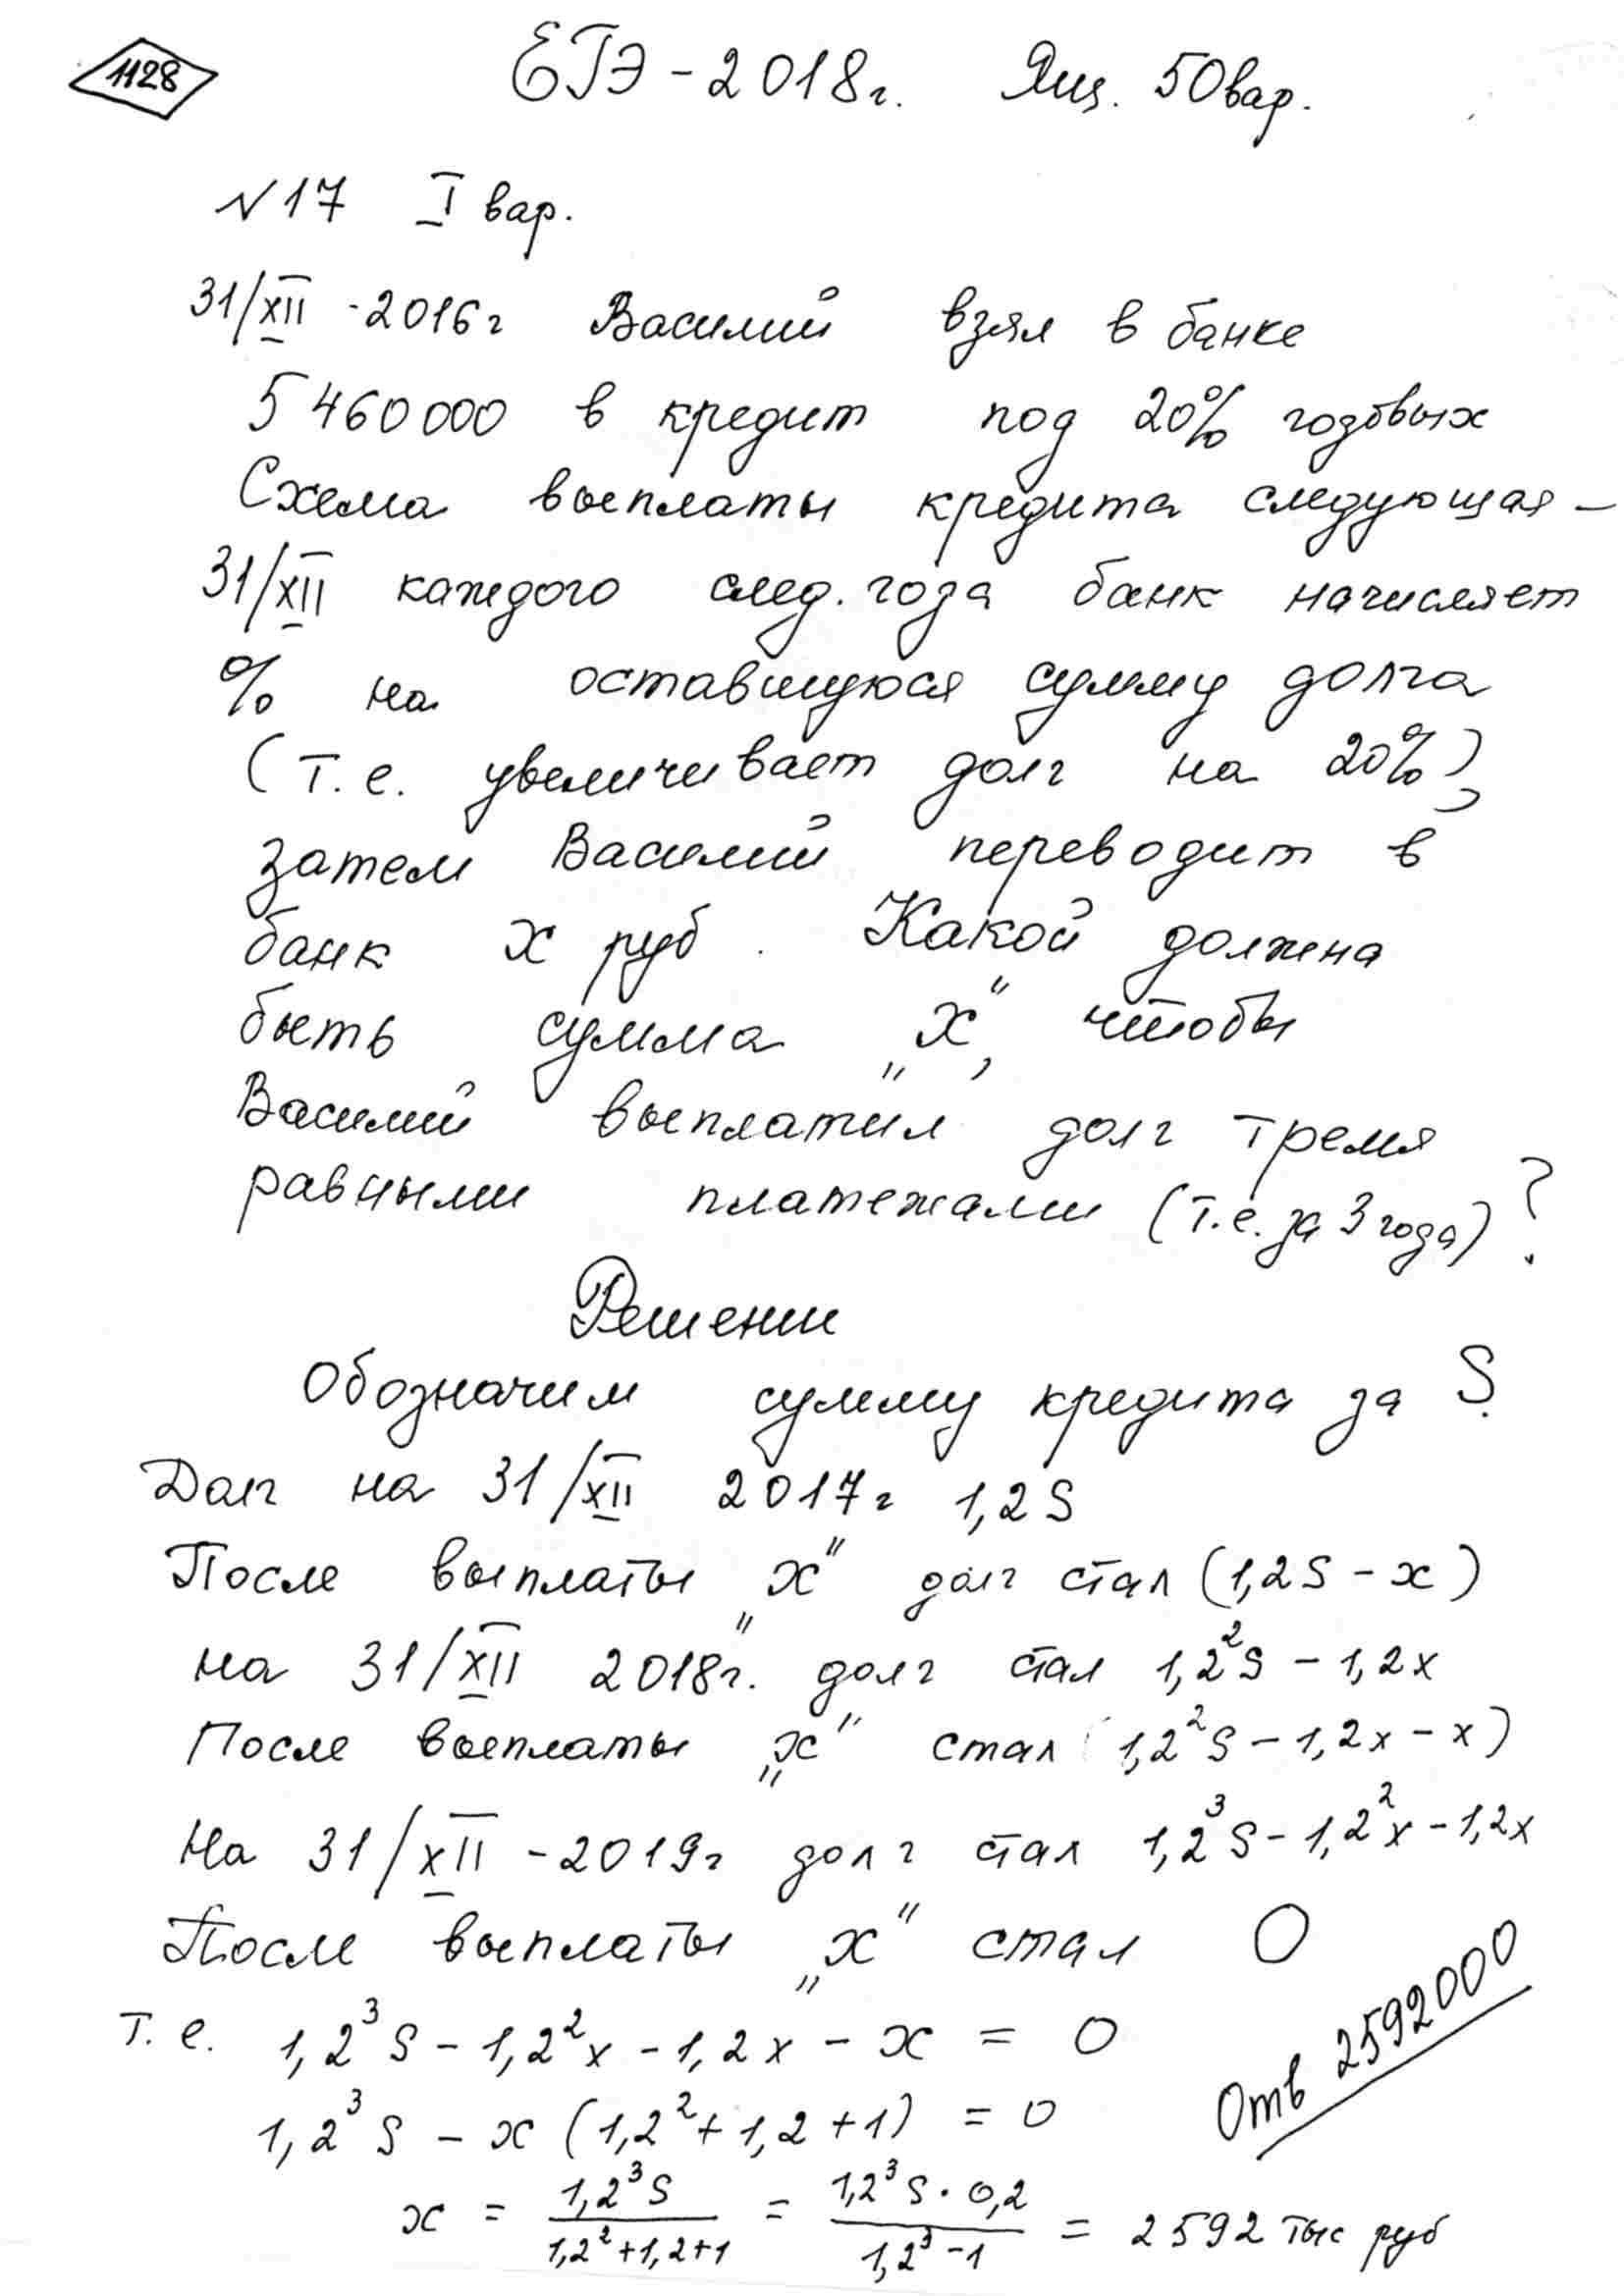 1128
ЕГЭ - 2018г. Ящ. 50вар.
№17 I вар.
31/XII - 2016г Василий взял в банке
5 460 000 в кредит под 20% годовых
Схема выплаты кредита следующая –
31/XII каждого след. года банк начисляет
% на оставшуюся сумму долга
(т.е. увеличивает долг на 20%),
затем Василий переводит в
банк x руб. Какой должна
быть сумма „x“, чтобы
Василий выплатил долг тремя
равными платежами (т.е. за 3 года)?
Решение
Обозначим сумму кредита за S.
Долг на 31/XII 2017г 1,2S
После выплаты „x“ долг стал (1,2S – x)
на 31/XII 2018г. долг стал 1,2²S – 1,2x
После выплаты „x“ стал (1,2²S – 1,2x – x)
На 31/XII - 2019г долг стал 1,2³S – 1,2²x – 1,2x
После выплаты „x“ стал 0
т.е. 1,2³S – 1,2²x – 1,2x – x = 0
1,2³S – x (1,2² + 1,2 + 1) = 0
x = 1,2³S / (1,2²+1,2+1) = 1,2³S · 0,2 / (1,2³ – 1) = 2592 тыс руб
Отв 2592000